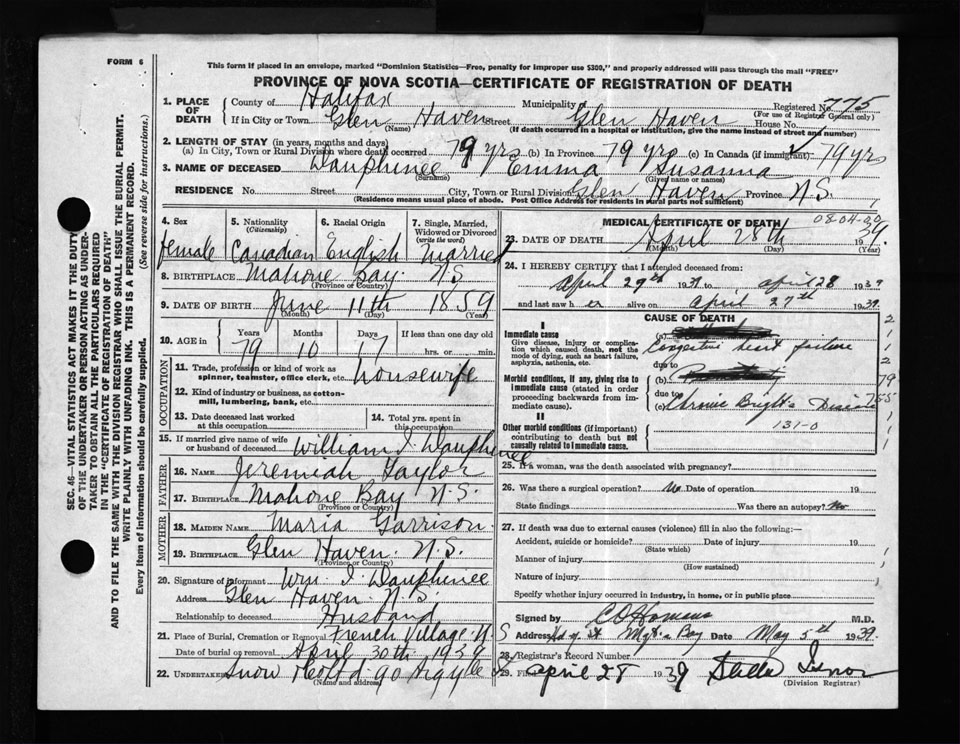 FORM 6
This form if placed in an envelope, marked "Dominion Statistics—Free, penalty for improper use $300," and properly addressed will pass through the mail "FREE"
PROVINCE OF NOVA SCOTIA—CERTIFICATE OF REGISTRATION OF DEATH
SEC. 46—VITAL STATISTICS ACT MAKES IT THE DUTY
OF THE UNDERTAKER OR PERSON ACTING AS UNDERTAKER TO OBTAIN ALL THE PARTICULARS REQUIRED
IN THE "CERTIFICATE OF REGISTRATION OF DEATH"
AND TO FILE THE SAME WITH THE DIVISION REGISTRAR WHO SHALL ISSUE THE BURIAL PERMIT.
WRITE PLAINLY WITH UNFADING INK. THIS IS A PERMANENT RECORD.
Every item of information should be carefully supplied. (See reverse side for instructions.)
1. PLACE OF DEATH County of Halifax Municipality of Registered No. 775
(For use of Registrar General only)
If in City or Town Glen Haven Street Glen Haven House No.
(Name) (If death occurred in a hospital or institution, give the name instead of street and number)
2. LENGTH OF STAY (in years, months and days)
(a) In City, Town or Rural Division where death occurred 79 yrs (b) In Province 79 yrs (c) In Canada (if immigrant) 79 yrs
3. NAME OF DECEASED Dauphinee Emma Susanna
(Surname) (Given or names)
RESIDENCE No. Street City, Town or Rural Division Glen Haven Province N.S.
(Residence means usual place of abode. Post Office Address for residents in rural parts not sufficient)
4. Sex female
5. Nationality (Citizenship) Canadian
6. Racial Origin English
7. Single, Married, Widowed or Divorced (write the word) Married
8. BIRTHPLACE Mahone Bay N.S.
(Province or Country)
9. DATE OF BIRTH June 11th 1859
(Month) (Day) (Year)
10. AGE in Years 79 Months 10 Days 17 If less than one day old hrs. or min.
OCCUPATION
11. Trade, profession or kind of work as spinner, teamster, office clerk, etc. housewife
12. Kind of industry or business, as cotton-mill, lumbering, bank, etc.
13. Date deceased last worked at this occupation
14. Total yrs. spent in this occupation
15. If married give name of wife or husband of deceased William I. Dauphinee
FATHER
16. NAME Jeremiah Taylor
17. BIRTHPLACE Mahone Bay N.S.
(Province or Country)
MOTHER
18. MAIDEN NAME Maria Garrison
19. BIRTHPLACE Glen Haven. N.S.
(Province or Country)
20. Signature of informant Wm. I. Dauphinee
Address Glen Haven. N.S.
Relationship to deceased Husband
21. Place of Burial, Cremation or Removal French Village N.S
Date of burial or removal April 30th 1939
22. UNDERTAKER Snow & Co Ltd 90 Argyle St
(Name and address)
MEDICAL CERTIFICATE OF DEATH
23. DATE OF DEATH April 28th 1939
(Month) (Day) (Year)
24. I HEREBY CERTIFY that I attended deceased from:
April 29th 193 to April 28 1939
and last saw h er alive on April 27th 1939.
CAUSE OF DEATH
I
Immediate cause
Give disease, injury or complication which caused death, not the mode of dying, such as heart failure, asphyxia, asthenia, etc.
(a)
Congestive heart failure
due to
Morbid conditions, if any, giving rise to immediate cause (stated in order proceeding backwards from immediate cause).
(b)
due to
(c) Chronic Bright's Disease
II
Other morbid conditions (if important) contributing to death but not causally related to immediate cause.
131-0
25. If a woman, was the death associated with pregnancy?
26. Was there a surgical operation? No Date of operation 19
State findings Was there an autopsy? No
27. If death was due to external causes (violence) fill in also the following:—
Accident, suicide or homicide? Date of injury 19
(State which)
Manner of injury
(How sustained)
Nature of injury
Specify whether injury occurred in industry, in home, or in public place
Signed by M.D.
Address Date May 5th 1939.
28. Registrar's Record Number
29. Filed April 28 1939
(Division Registrar)